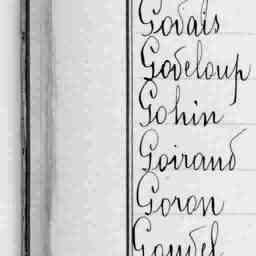 Godals
Godeloup
Gohin
Goirand
Goron
Goudel